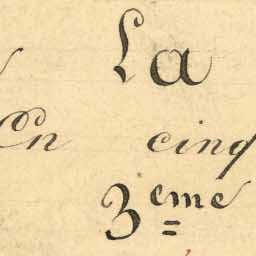 La
En cinq
3eme